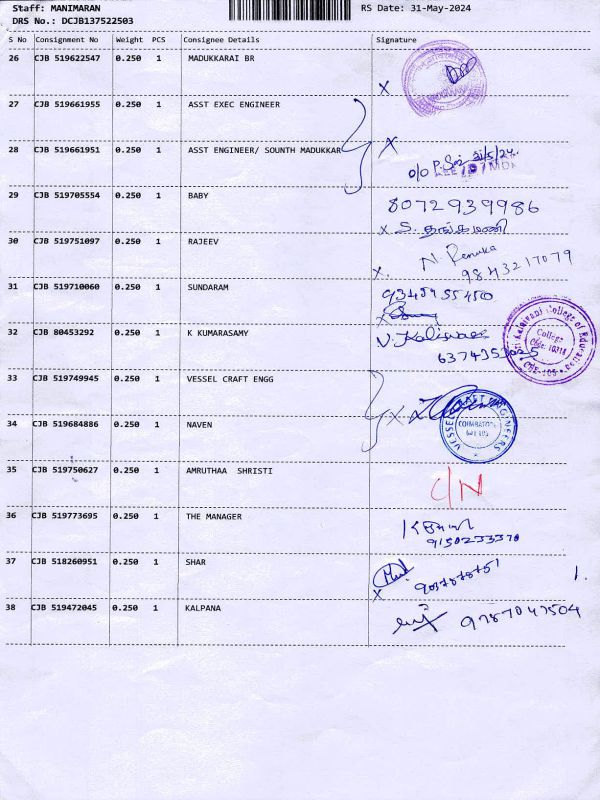 Staff: MANIMARAN
RS Date: 31-May-2024
DRS No.: DCJB137522503
S No Consignment No Weight PCS Consignee Details Signature
26 CJB 519622547 0.250 1 MADUKKARAI BR
X
27 CJB 519661955 0.250 1 ASST EXEC ENGINEER
X
28 CJB 519661951 0.250 1 ASST ENGINEER/ SOUNTH MADUKKAR
31/5/24
29 CJB 519705554 0.250 1 BABY 8072939986
X S. தங்கமணி
30 CJB 519751097 0.250 1 RAJEEV N. Renuka
X 9843217079
31 CJB 519710060 0.250 1 SUNDARAM
X
32 CJB 80453292 0.250 1 K KUMARASAMY
College
33 CJB 519749945 0.250 1 VESSEL CRAFT ENGG
X
VESSEL CRAFT ENGINEERS
COIMBATORE
34 CJB 519684886 0.250 1 NAVEN
35 CJB 519750627 0.250 1 AMRUTHAA SHRISTI C/N
36 CJB 519773695 0.250 1 THE MANAGER
9150233370
37 CJB 518260951 0.250 1 SHAR
X
1.
38 CJB 519472045 0.250 1 KALPANA 9787047504